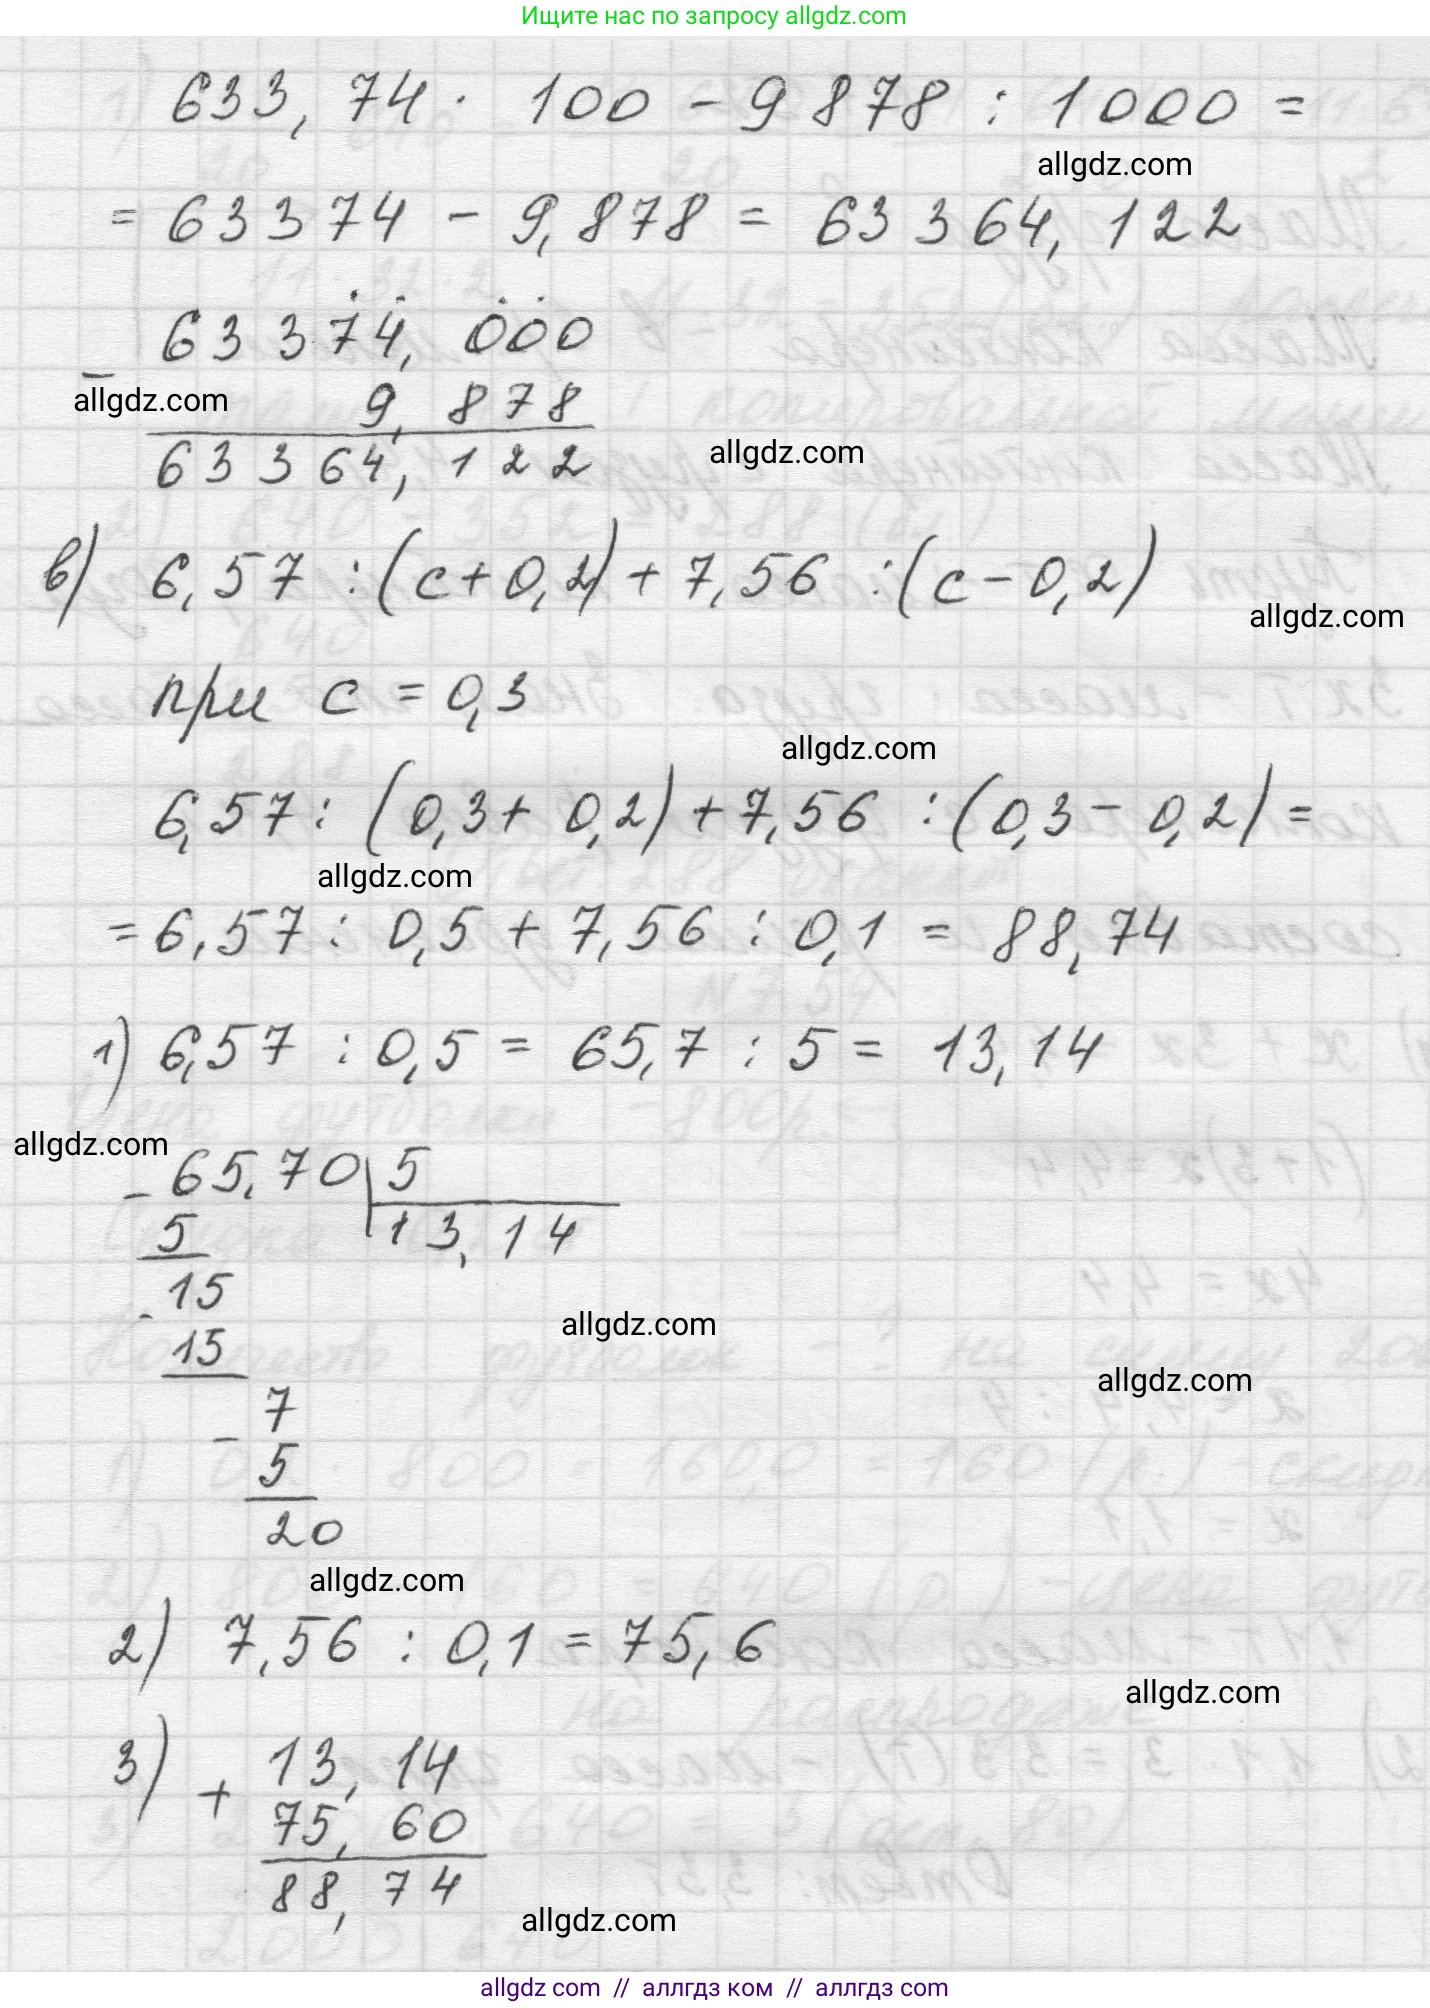 Ищите нас по запросу allgdz.com
633,74 · 100 - 9878 : 1000 =
allgdz.com
= 63374 - 9,878 = 63364,122
63374,000
-
allgdz.com
9,878
63364,122
allgdz.com
в) 6,57 : (c+0,2) + 7,56 : (c-0,2)
allgdz.com
при c = 0,3
allgdz.com
6,57 : (0,3 + 0,2) + 7,56 : (0,3 - 0,2) =
allgdz.com
= 6,57 : 0,5 + 7,56 : 0,1 = 88,74
1) 6,57 : 0,5 = 65,7 : 5 = 13,14
allgdz.com
- 65,70 | 5
5 13,14
- 15
allgdz.com
15
allgdz.com
- 7
5
20
allgdz.com
2) 7,56 : 0,1 = 75,6
allgdz.com
3) + 13,14
75,60
88,74
allgdz.com
allgdz com // аллгдз ком // аллгдз com